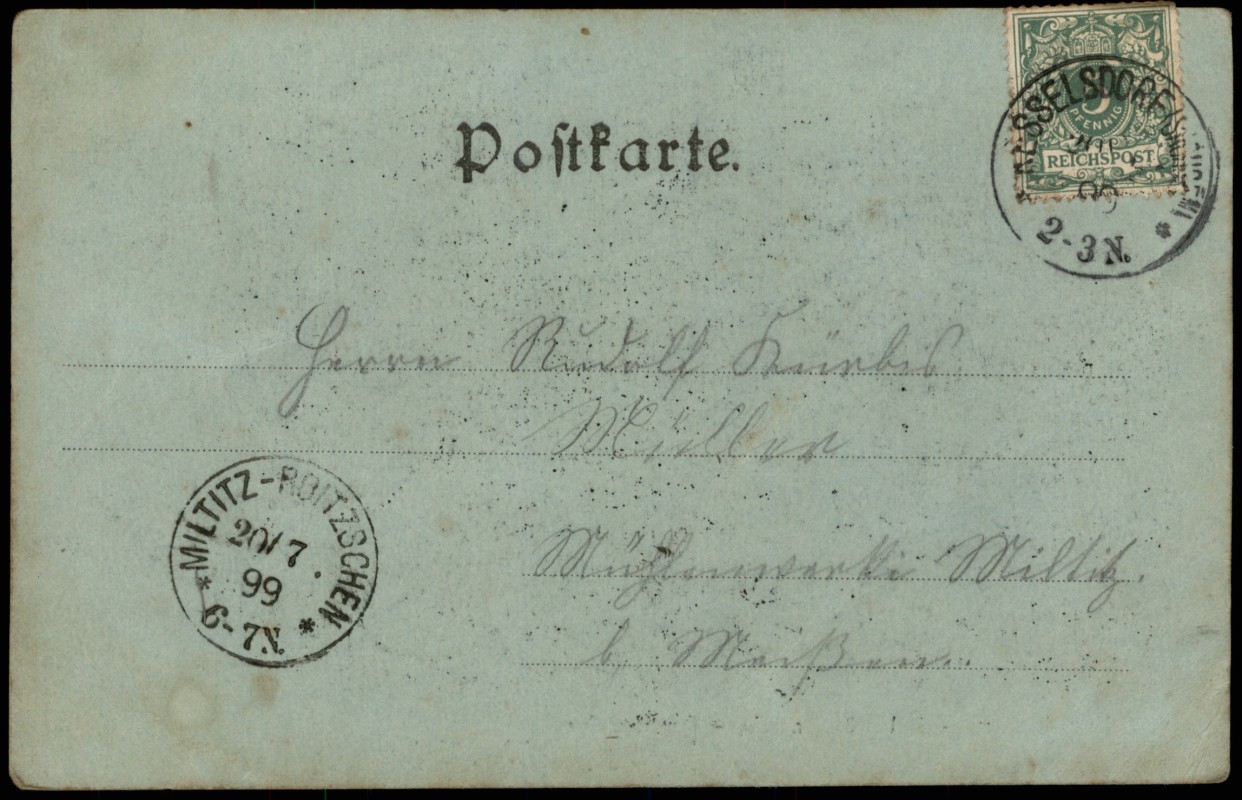 Postkarte.
5
PFENNIG
REICHSPOST
KESSELSDORF
20/7
99
2-3N.
Herrn Rudolf Kürbis
Müller
Mühlenwerke Miltitz.
b. Meißen.
MILTITZ-ROITZSCHEN
20/7
99
6-7N.